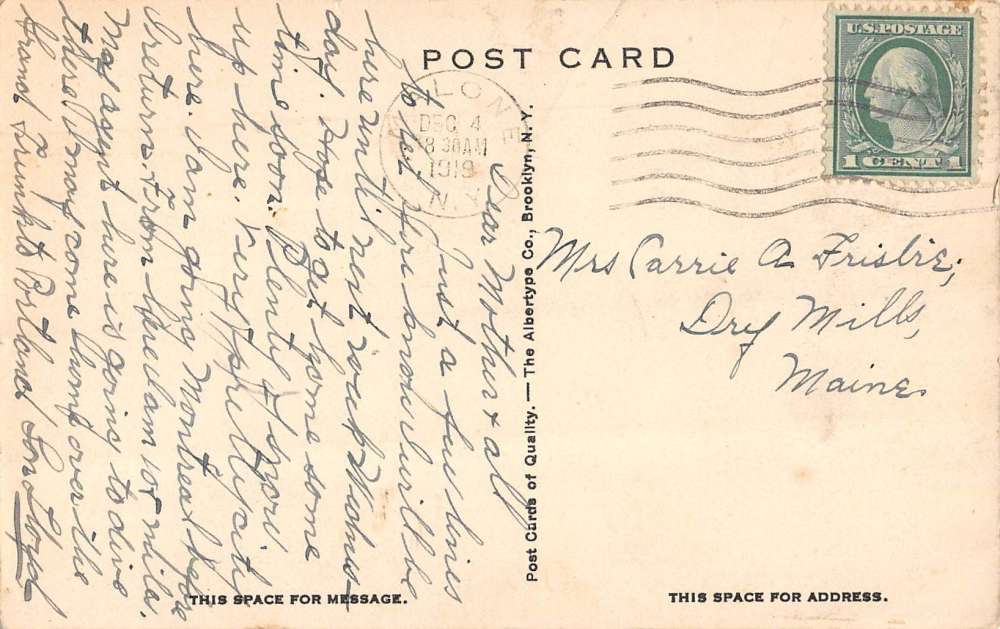 POST CARD
U.S. POSTAGE
1 CENT 1
MALONE
DEC 4
8 30AM
1919
N.Y.
Dear Mother & all
Just a few lines
to let you know I will be
here until next week Wednes-
day. Hope to get home some
time soon. Plenty of snow
up here. Very pretty city
here. I am going Montreal
return. From here I am 107 mile.
My agent here is going to drive
there & may come home over the
Grand Trunk to Portland Son Lloyd
Mrs Carrie A Frisbie,
Dry Mills,
Maine.
Post Cards of Quality. — The Albertype Co., Brooklyn, N. Y.
THIS SPACE FOR MESSAGE.
THIS SPACE FOR ADDRESS.